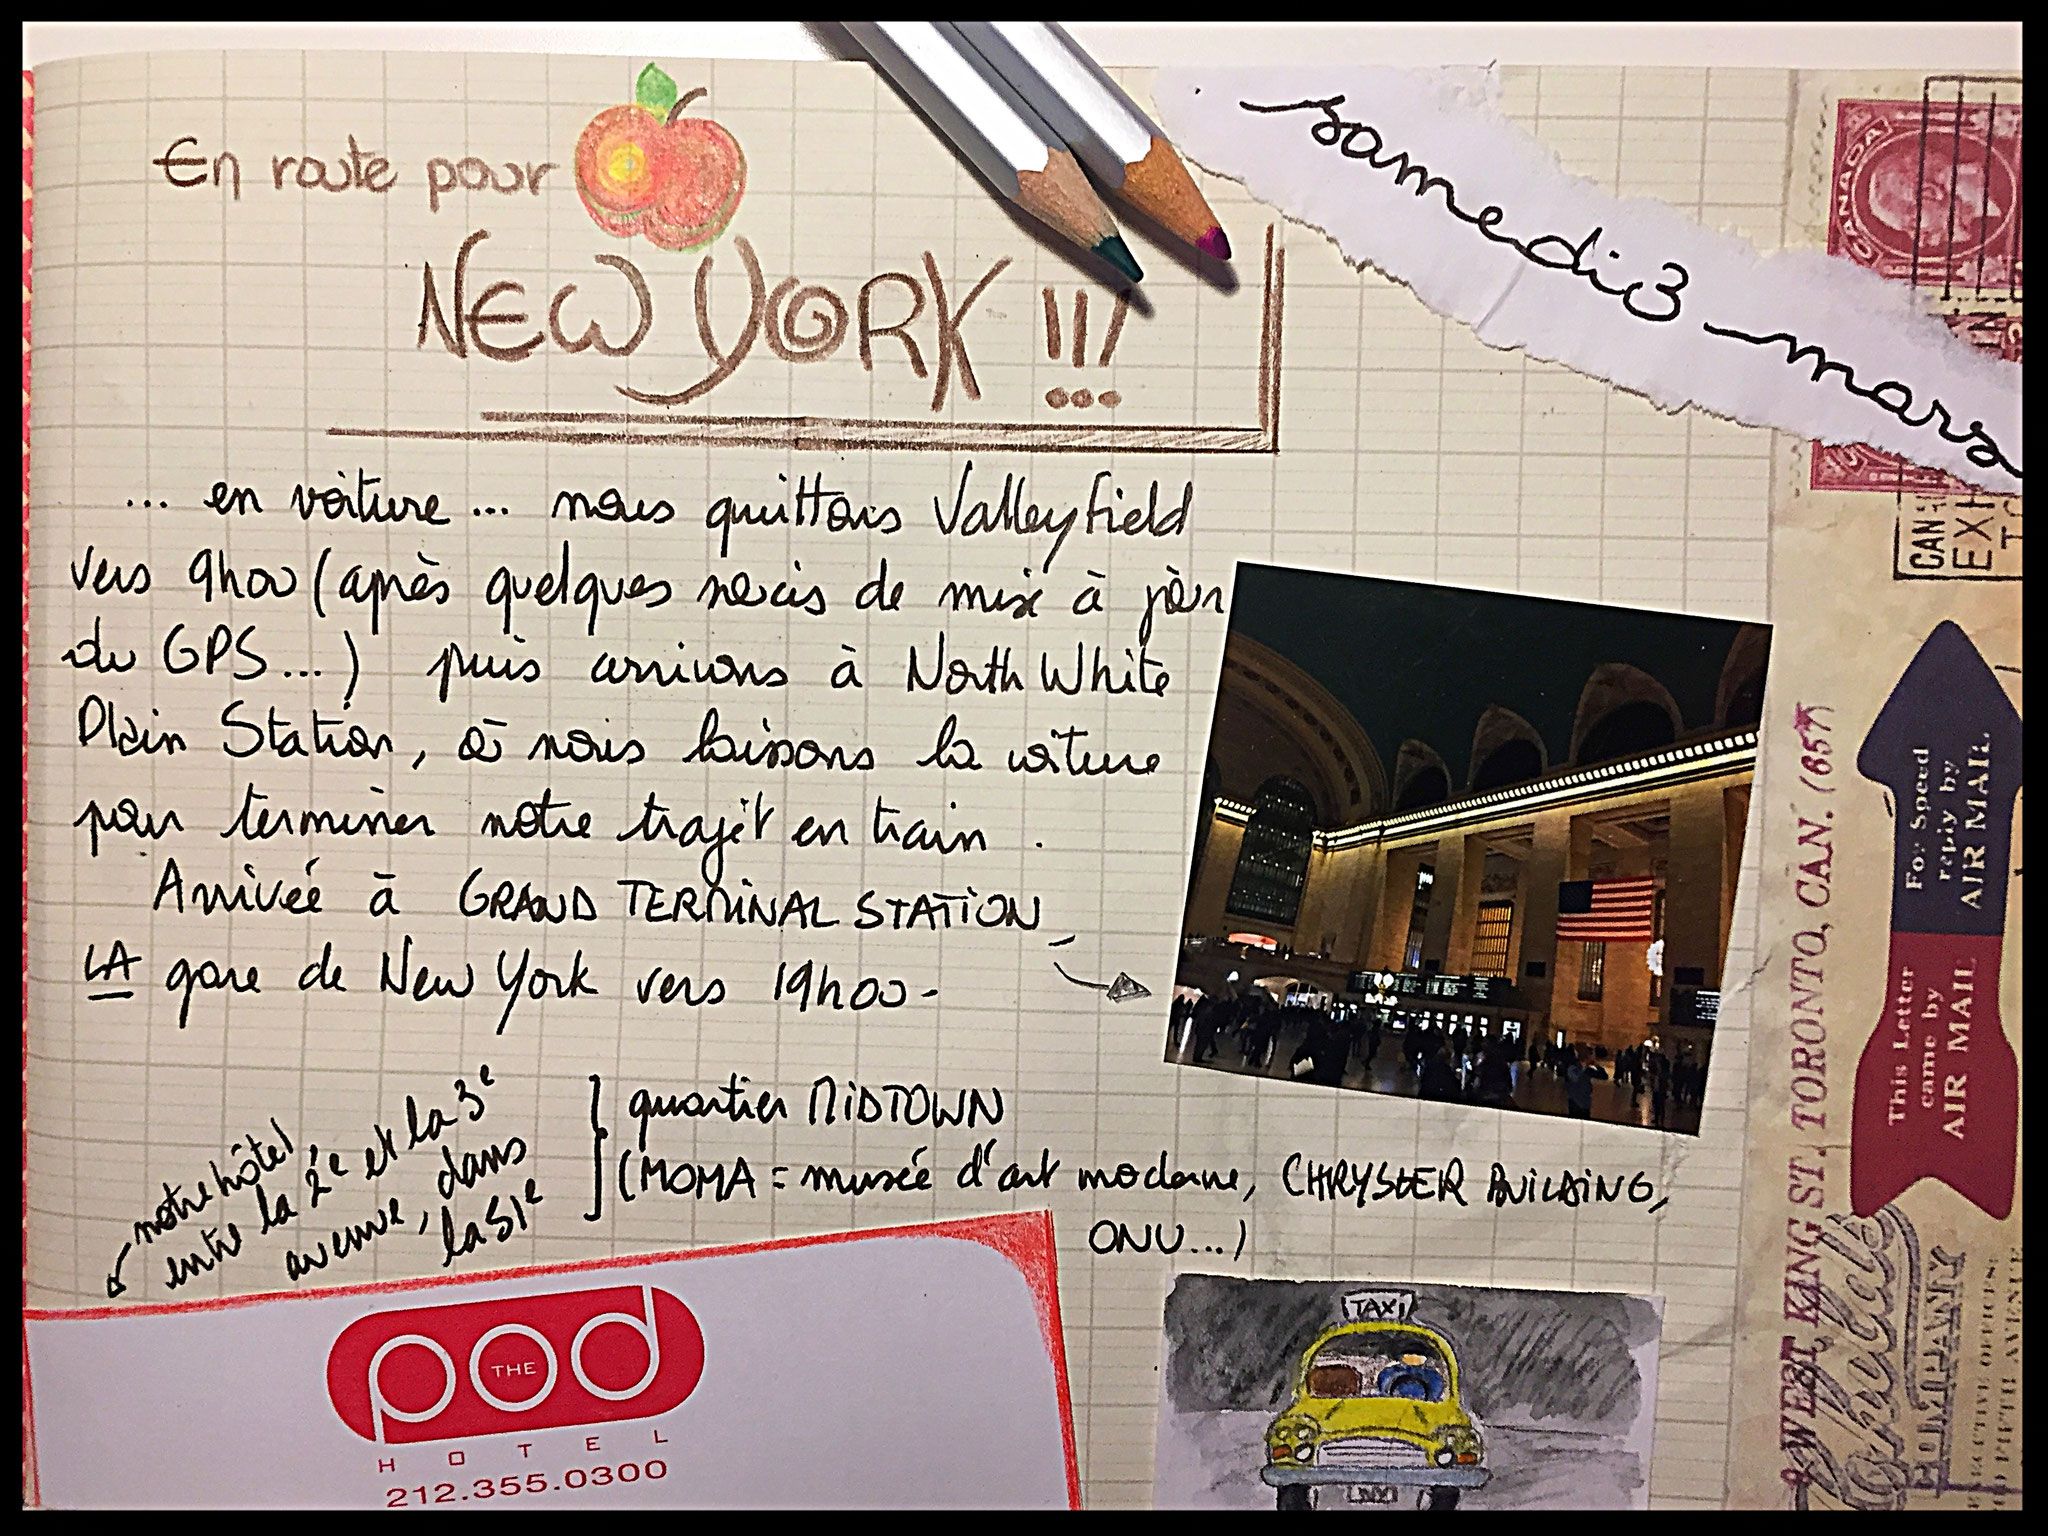 samedi 3 mars
En route pour
NEW YORK !!!
... en voiture ... nous quittons Valleyfield
vers 9h00 (après quelques soucis de mise à jour
du GPS...) puis arrivons à North White
Plain Station, où nous laissons la voiture
pour terminer notre trajet en train.
Arrivée à GRAND TERMINAL STATION
LA gare de New York vers 19h00-
notre hôtel
entre la 2e et la 3e
avenue, dans
la 51e
quartier MIDTOWN
(MOMA = musée d'art moderne, CHRYSLER BUILDING,
ONU...)
THE
pod
HOTEL
212.355.0300
TAXI
CANADA
For Speed
reply by
AIR MAIL.
This Letter
came by
AIR MAIL
WEST KING ST. TORONTO, CAN. (657)
COMPANY